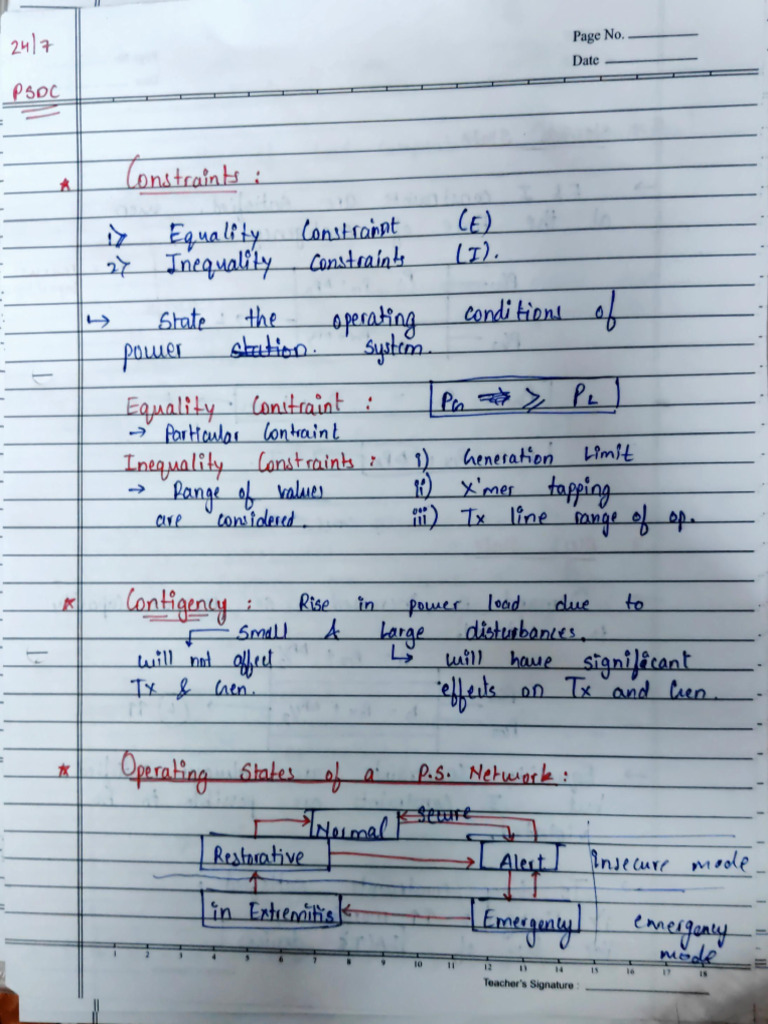 24/7
Page No.
Date
PSDC
* Constraints :
1) Equality Constraint (E)
2) Inequality Constraints (I).
↳ State the operating conditions of
power station. system.
Equality Constraint : PG ≥ PL
→ Particular Contraint
Inequality Constraints : i) Generation Limit
→ Range of values ii) X'mer tapping
are considered. iii) Tx line range of op.
* Contigency : Rise in power load due to
small & large disturbances.
will not affect ↳ will have significant
Tx & Gen. effects on Tx and Gen.
* Operating States of a P.S. Network :
Normal secure
Restorative Alert Insecure mode
in Extremitis Emergency emergency
mode
1 2 3 4 5 6 7 8 9 10 11 12 13 14 15 16 17 18
Teacher's Signature :